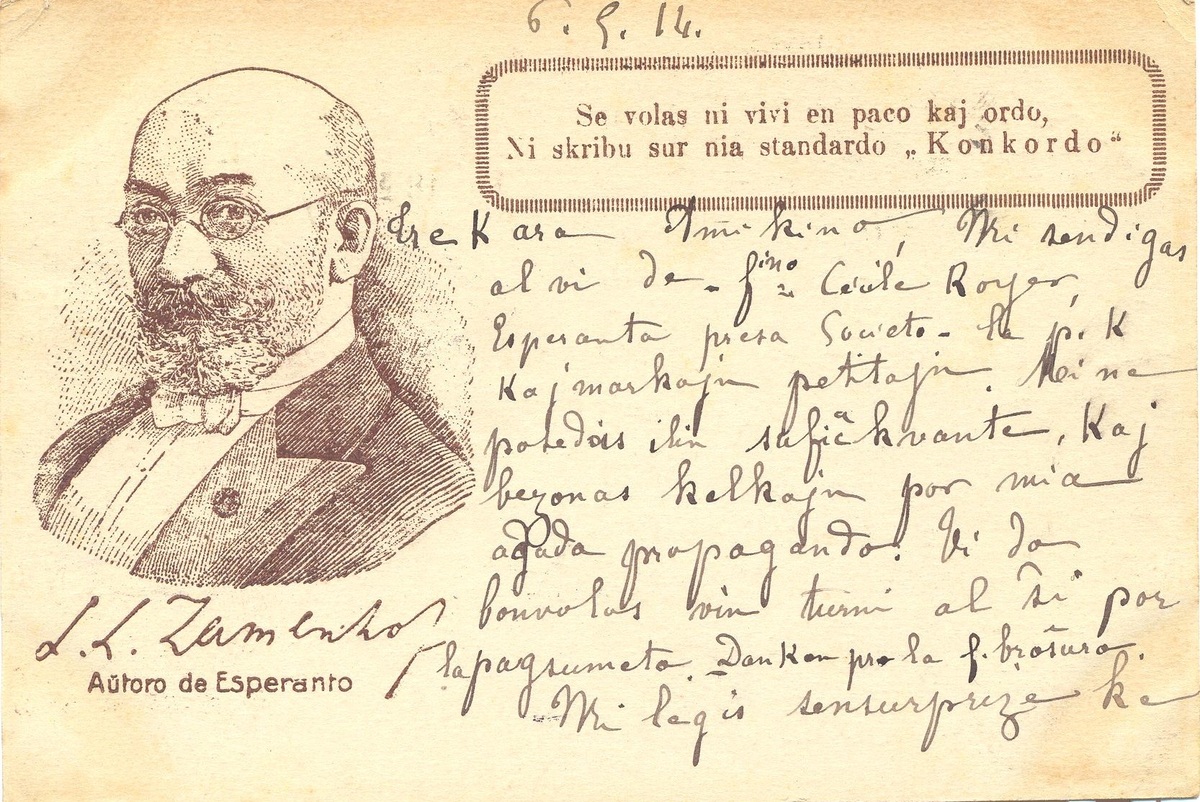 6. 5. 14.
Se volas ni vivi en paco kaj ordo,
Ni skribu sur nia standardo „Konkordo“
Tre Kara Amikino, Mi sendigas
al vi de fino Cécile Royer,
Esperanta presa Societo - la p. K
Kaj markajn petitajn. Mi ne
posedas ilin sufiĉe kvante, Kaj
bezonas kelkajn por mia
agada propagando. Vi do
bonvolas vin turni al ŝi por
la pagsumeto. Dankon pro la f. broŝuro.
Mi legis sensurprize ke
L. L. Zamenhof
Aŭtoro de Esperanto